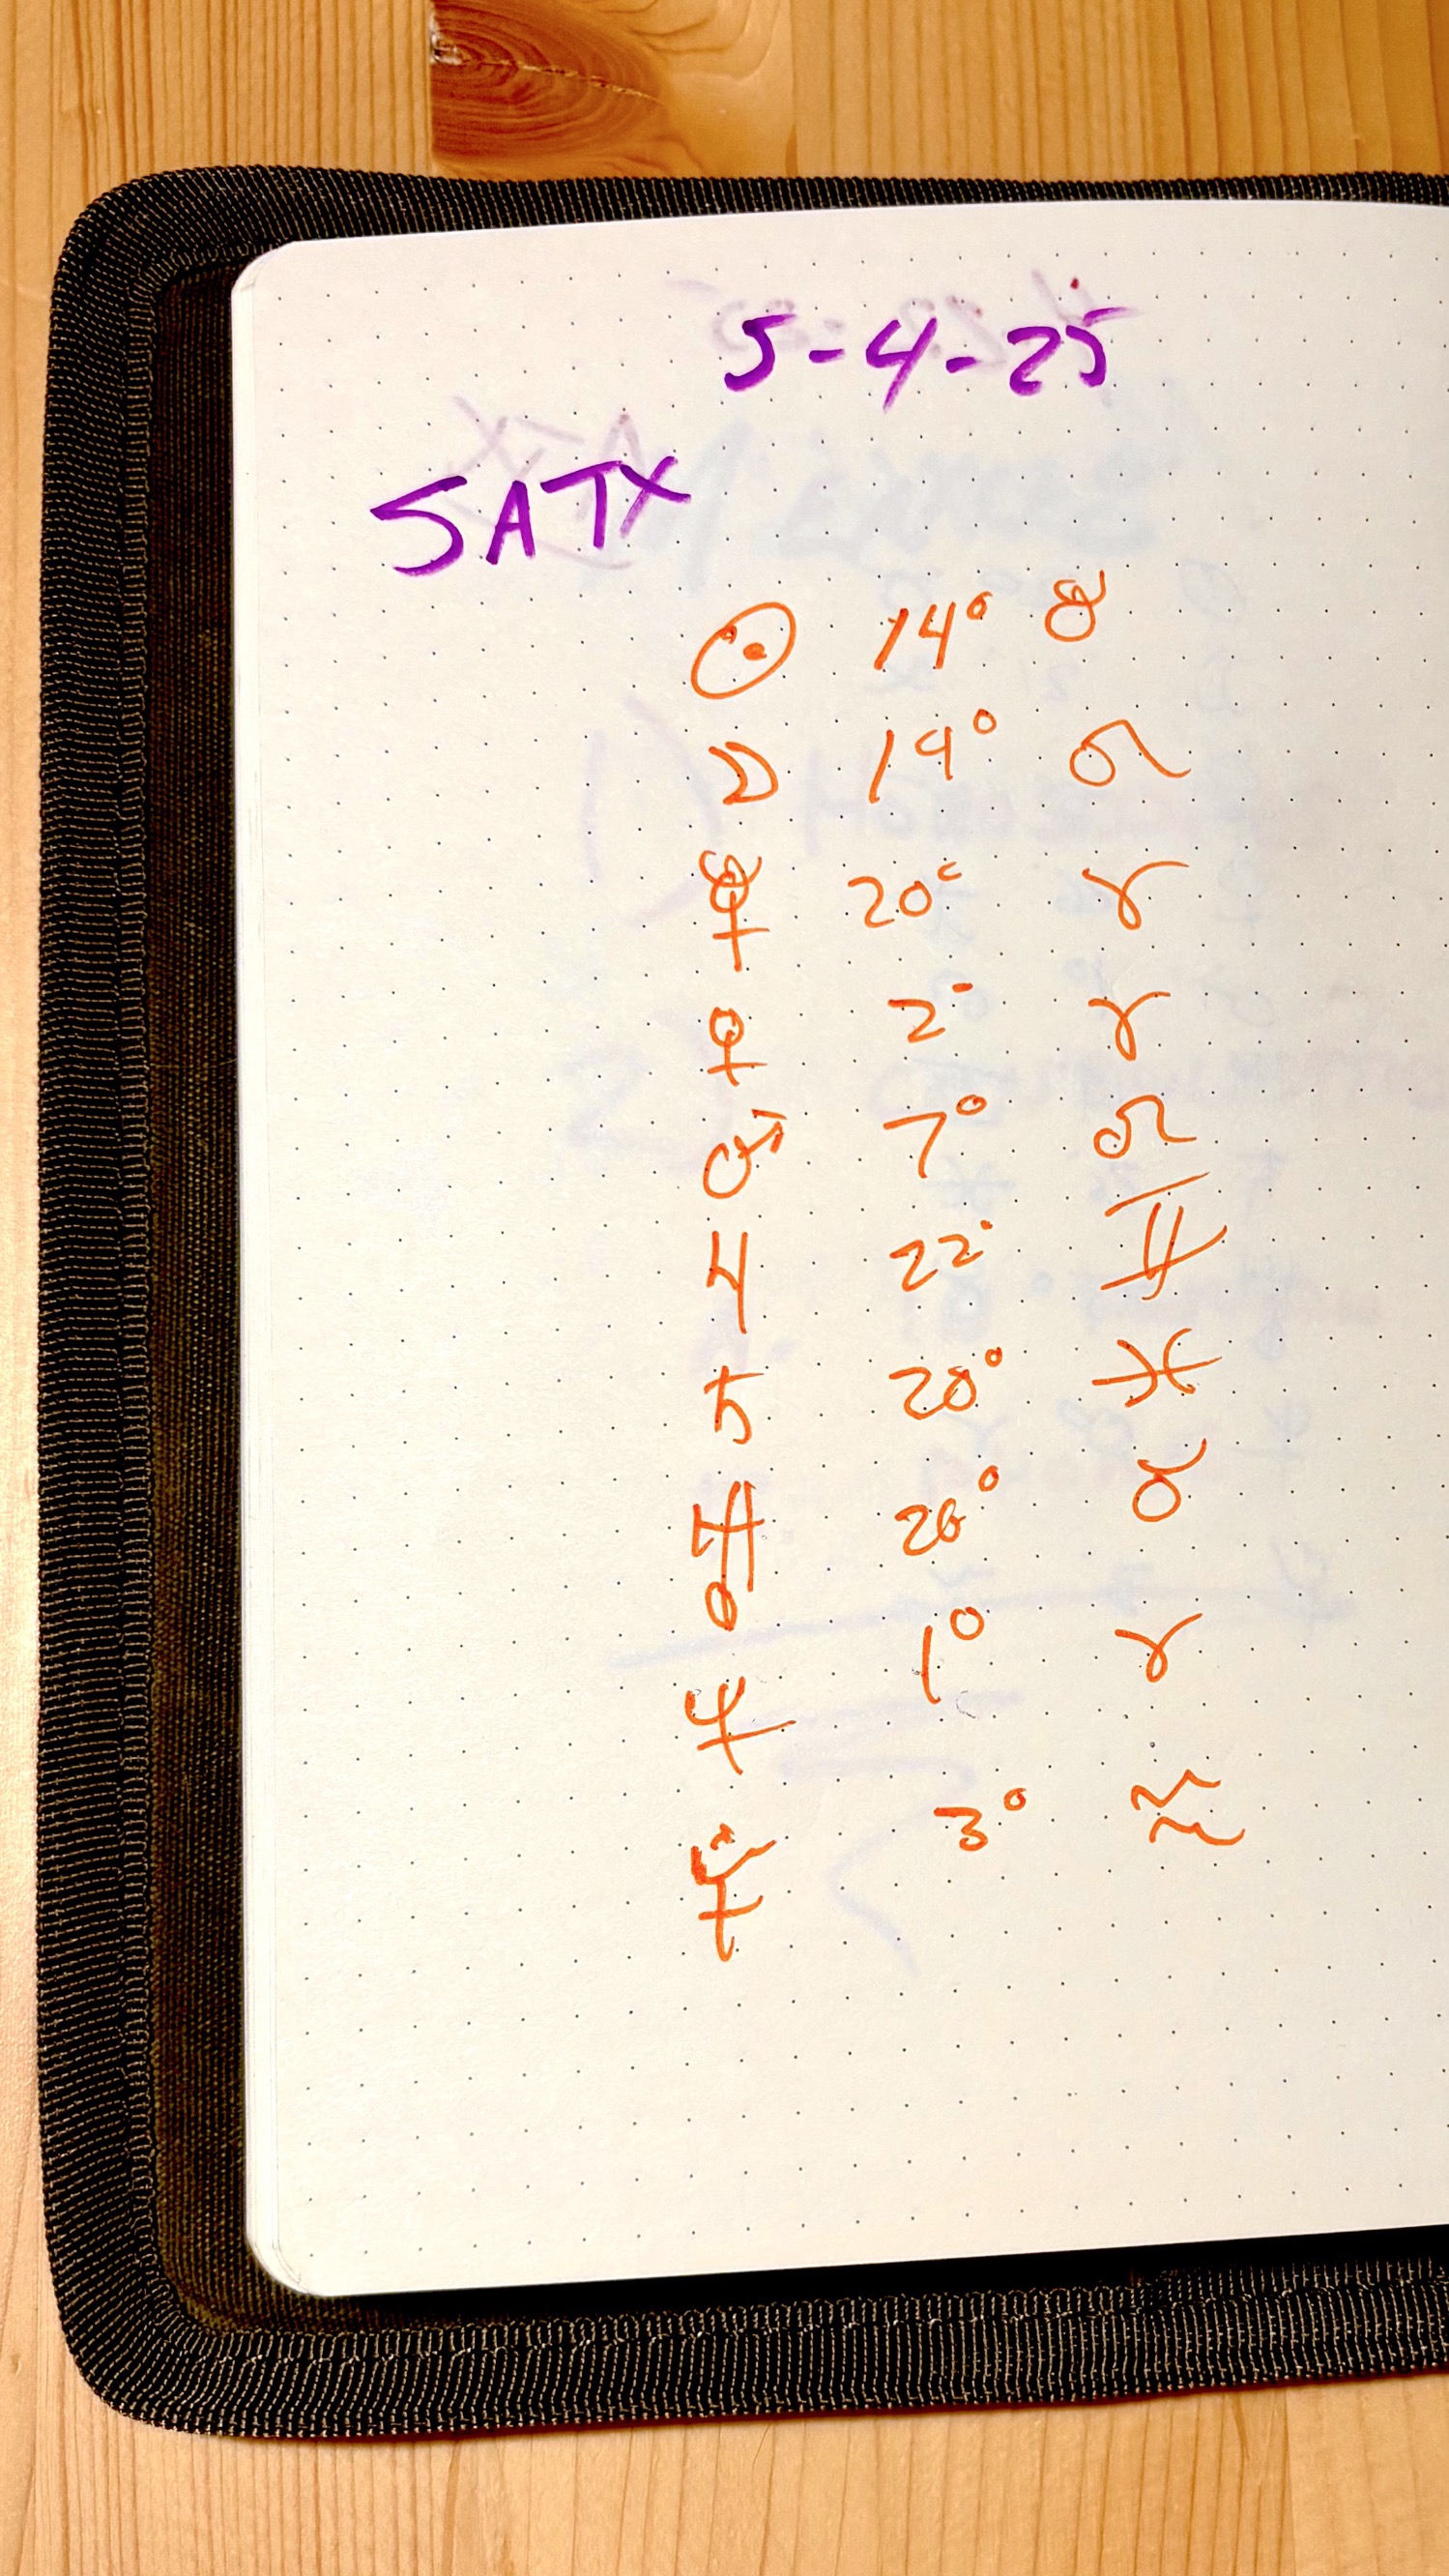 5-4-25
SATX
☉ 14° ♉
☽ 19° ♌
☿ 20° ♈
♀ 2° ♈
♂ 7° ♌
♃ 22° ♊
♄ 20° ♓
♅ 26° ♉
♆ 1° ♈
♇ 3° ♒